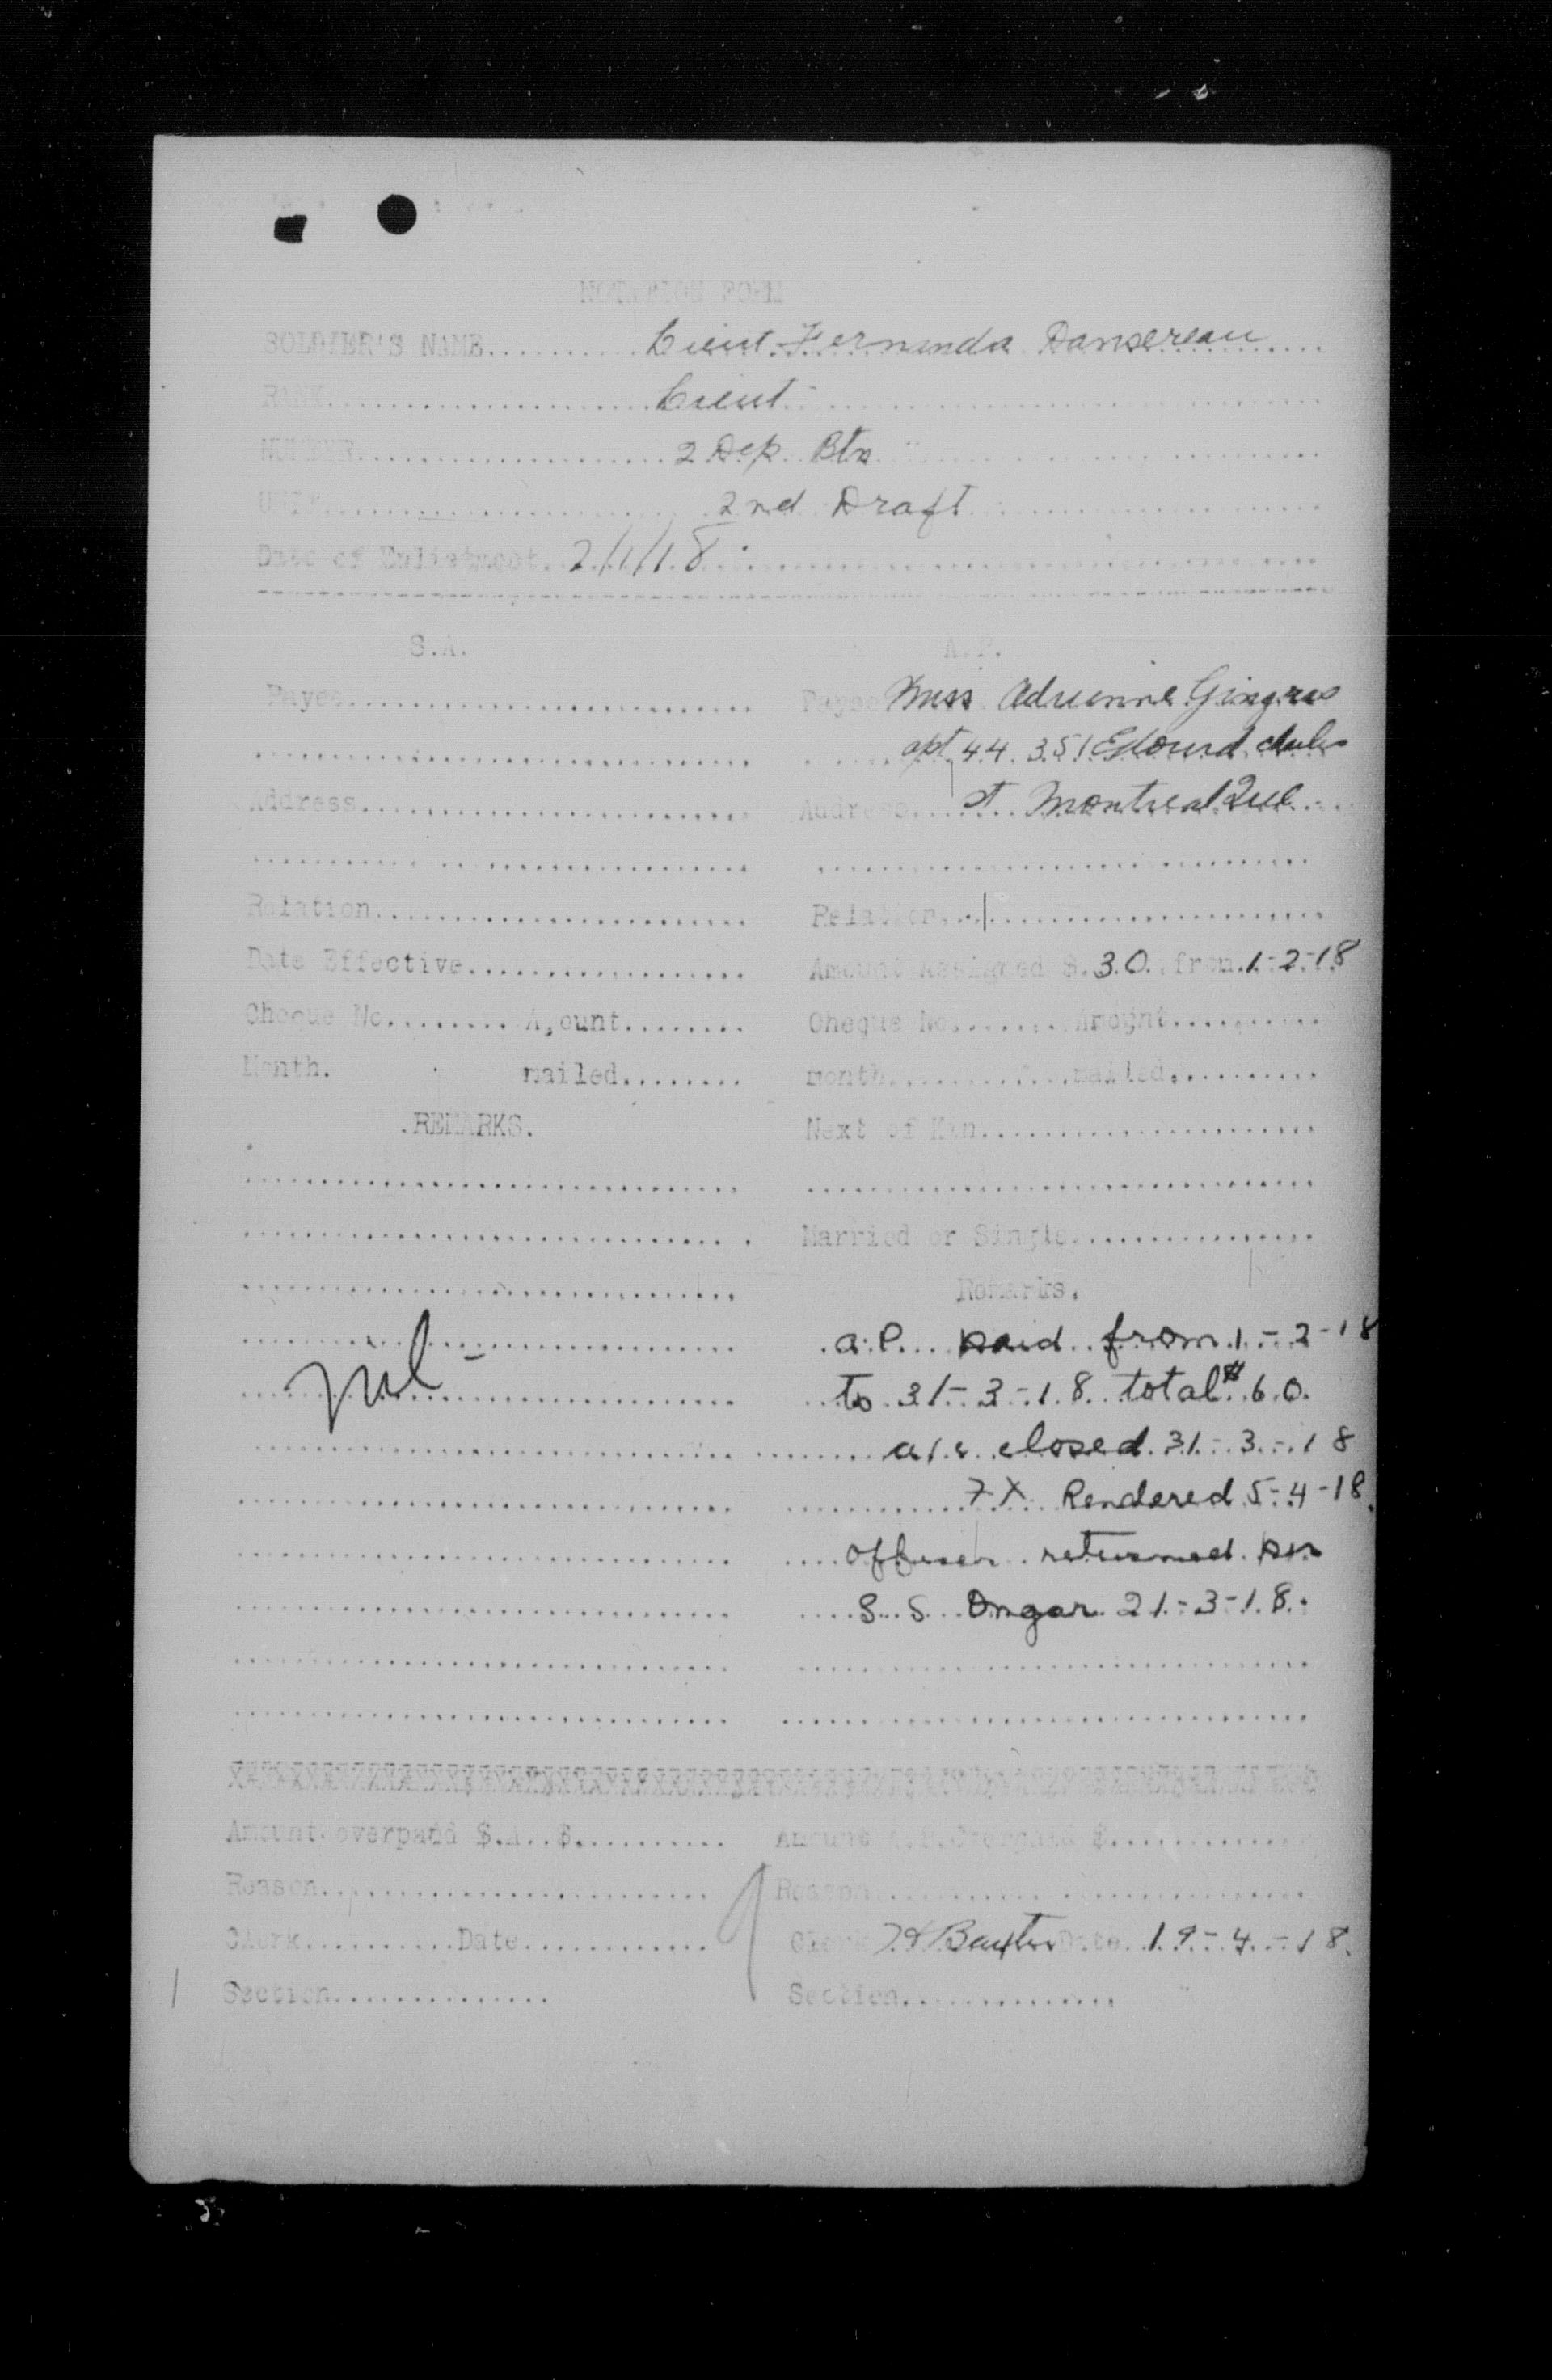 NOTATION FORM
SOLDIER'S NAME.......... Lieut. Fernando Dansereau
RANK.................... Lieut.
NUMBER.................... 2 Dep. Btn
UNIT.................... 2nd Draft
Date of Enlistment. 2/1/18
S.A. A.P.
Payee.......................... Payee Miss Adrienne Gingras
apt 44. 351
Address........................ Address..... st. Montreal Que
Relation........................ Relation........................
Date Effective.................. Amount Assigned $.30. from 1-2-18
Cheque No........ A,ount........ Cheque No........ Amount..........
Month. mailed........ month............ mailed..........
.REMARKS. Next of Kin......................
Married or Single................
Remarks.
a.P. paid from 1-2-18
nil - to 31-3-18 total $60.
a/c closed 31-3-18
Rendered 5-4-18.
Officer returned per
S.S. Ongar 21-3-18.
Amount overpaid S.A. $.......... Amount A.P. Overpaid $............
Reason......................... Reason.........................
Clerk.......... Date............ Clerk Baxter Date 19-4-18.
Section.............. Section..............